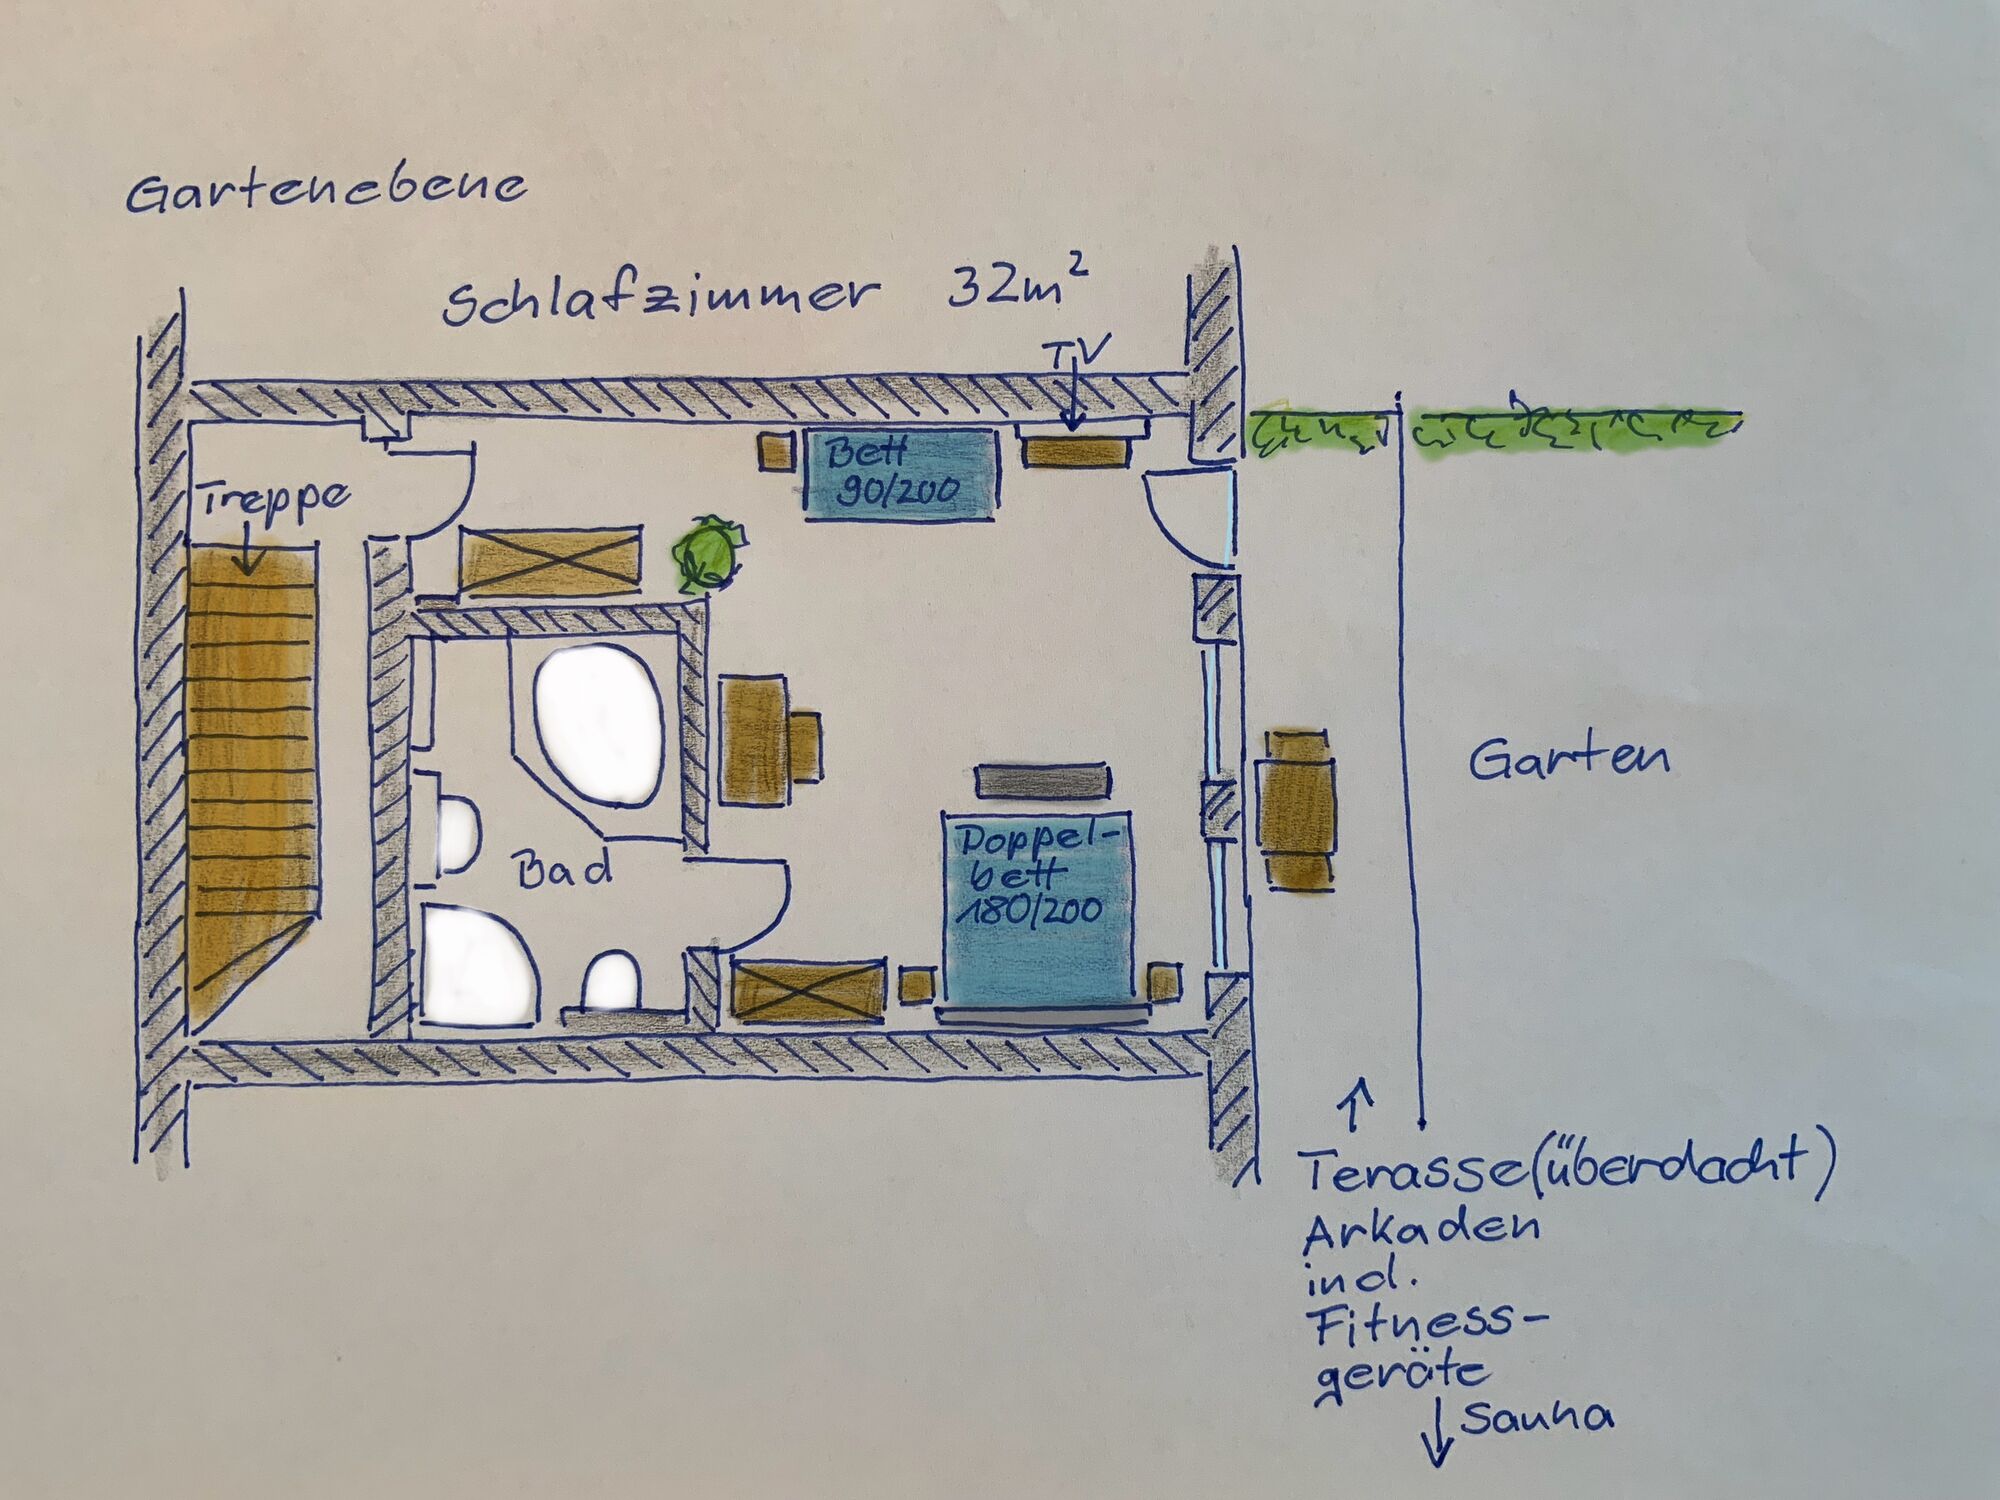 Gartenebene
Schlafzimmer 32m²
TV
Bett
90/200
Treppe
Garten
Doppel-
bett
180/200
Bad
Terasse (überdacht)
Arkaden
incl.
Fitness-
geräte
Sauna